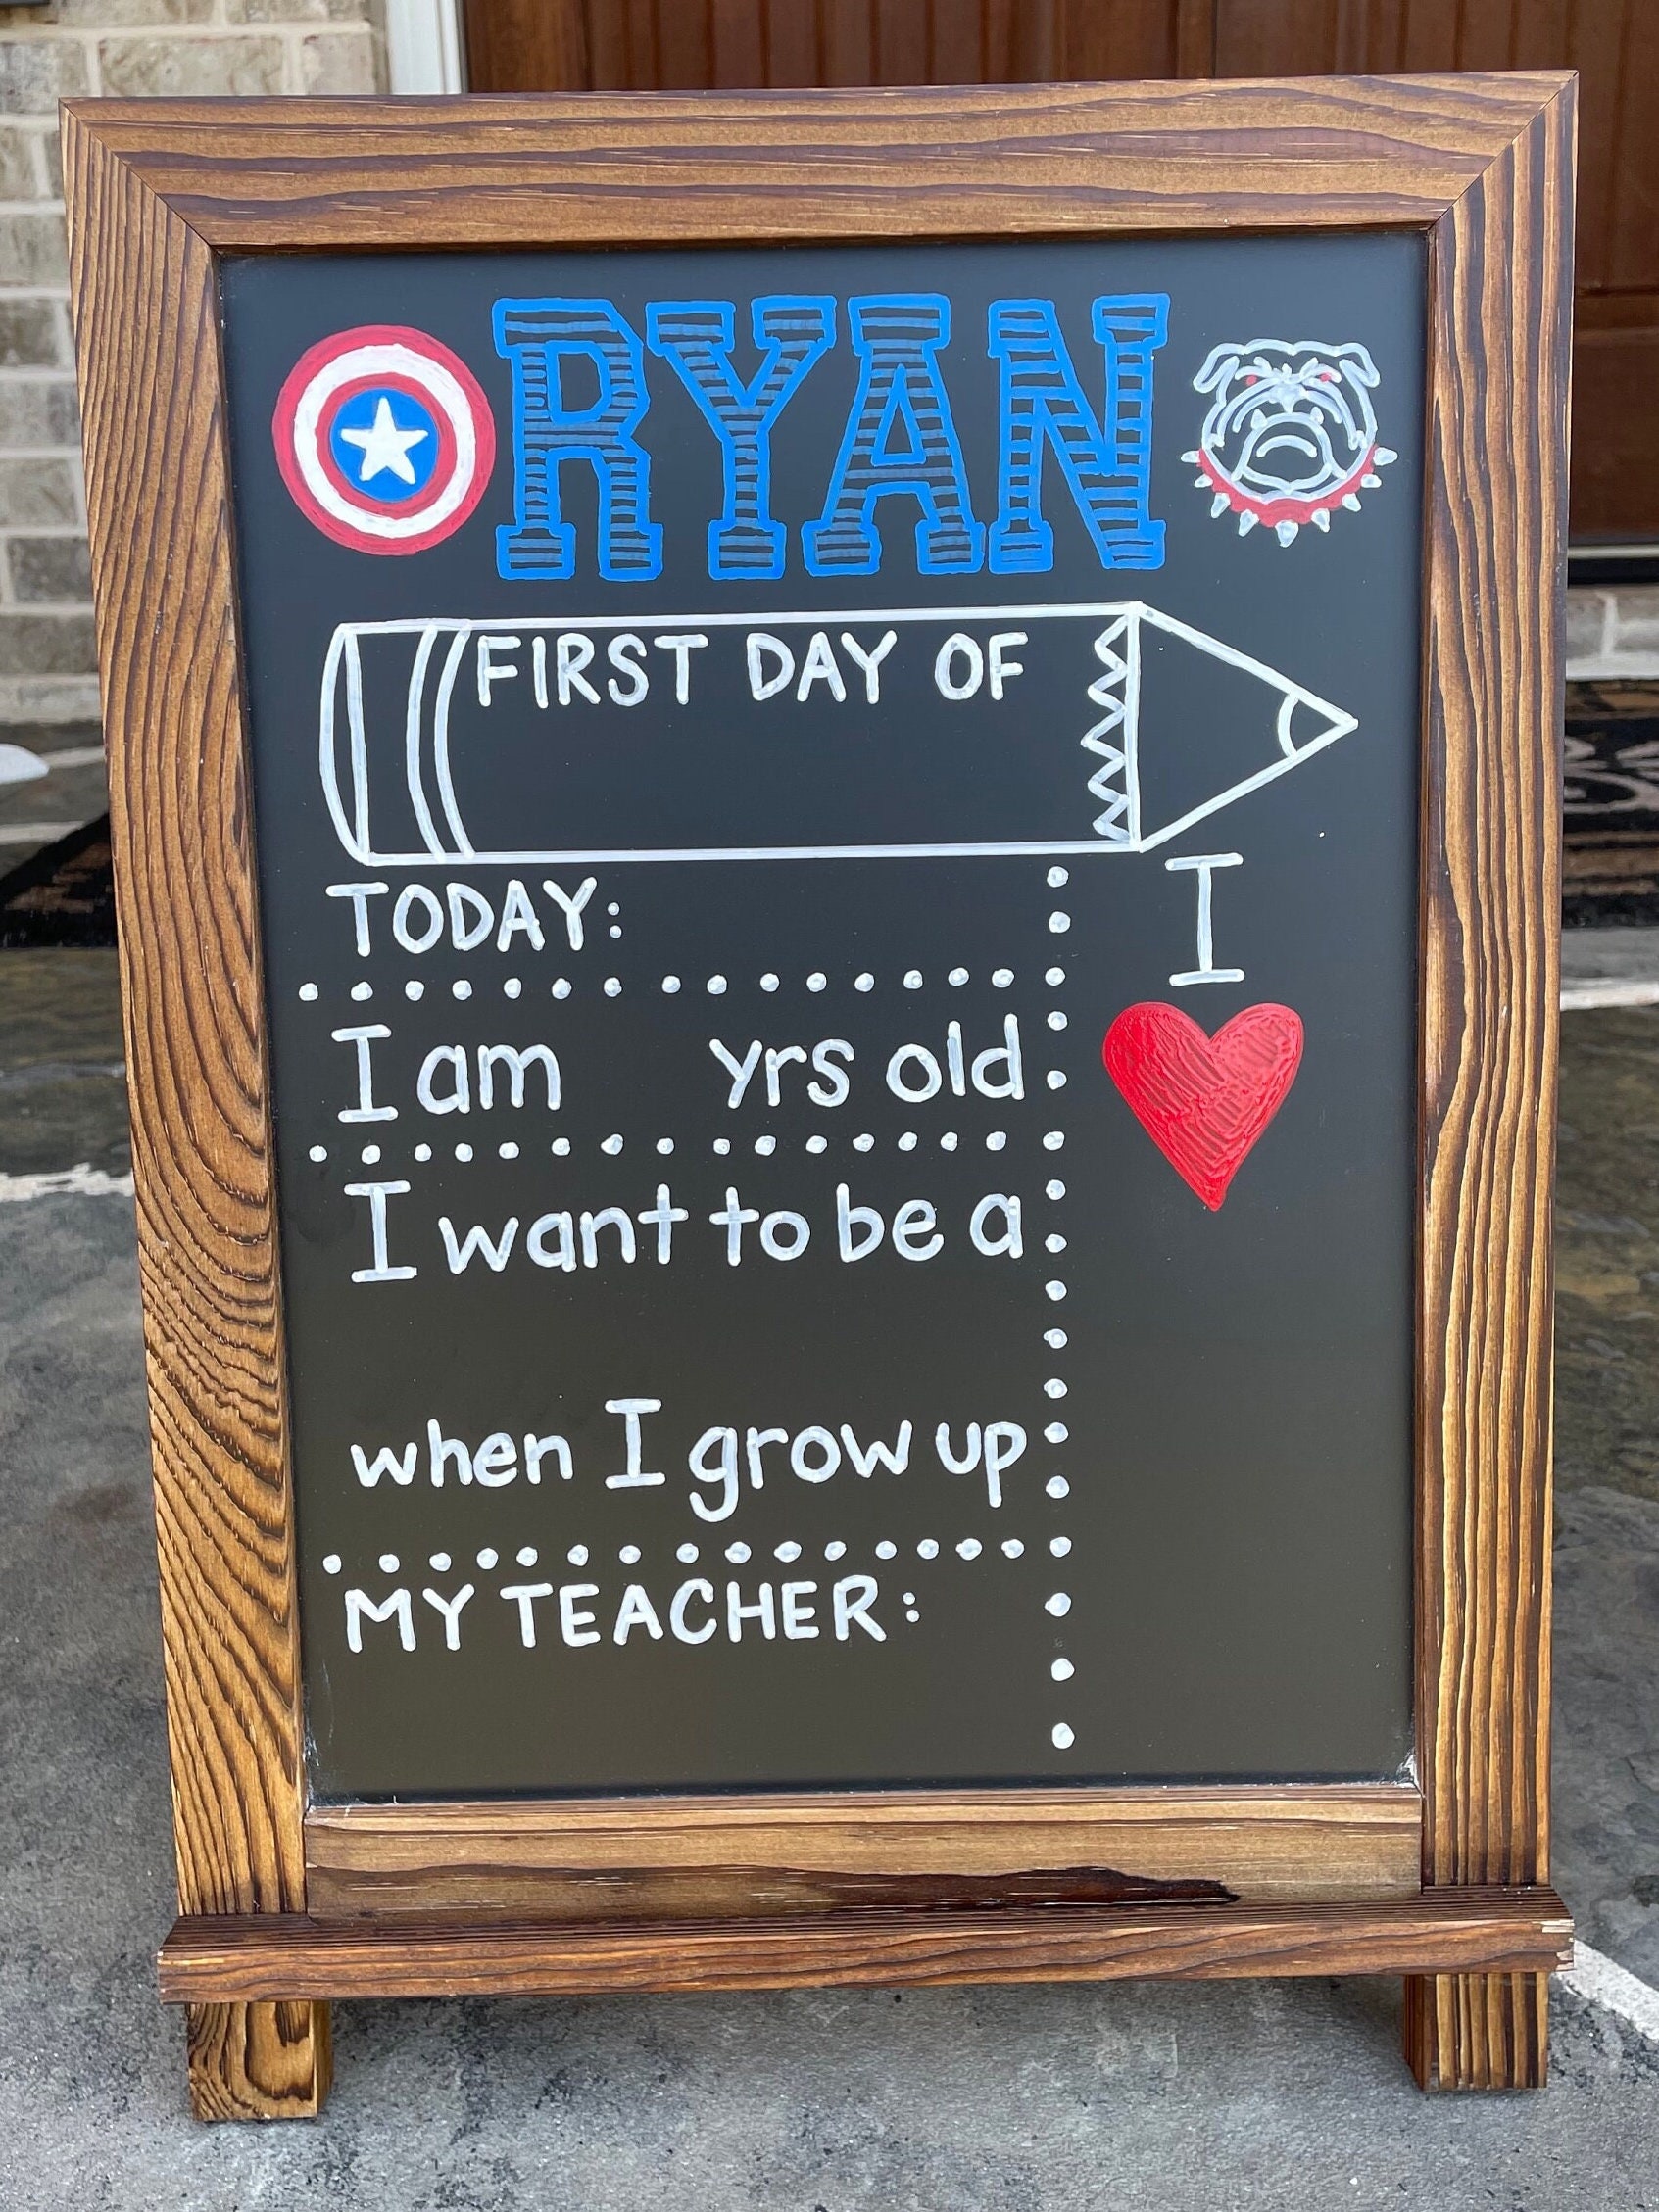 RYAN
FIRST DAY OF
TODAY:
I am yrs old
I want to be a
when I grow up
MY TEACHER:
I